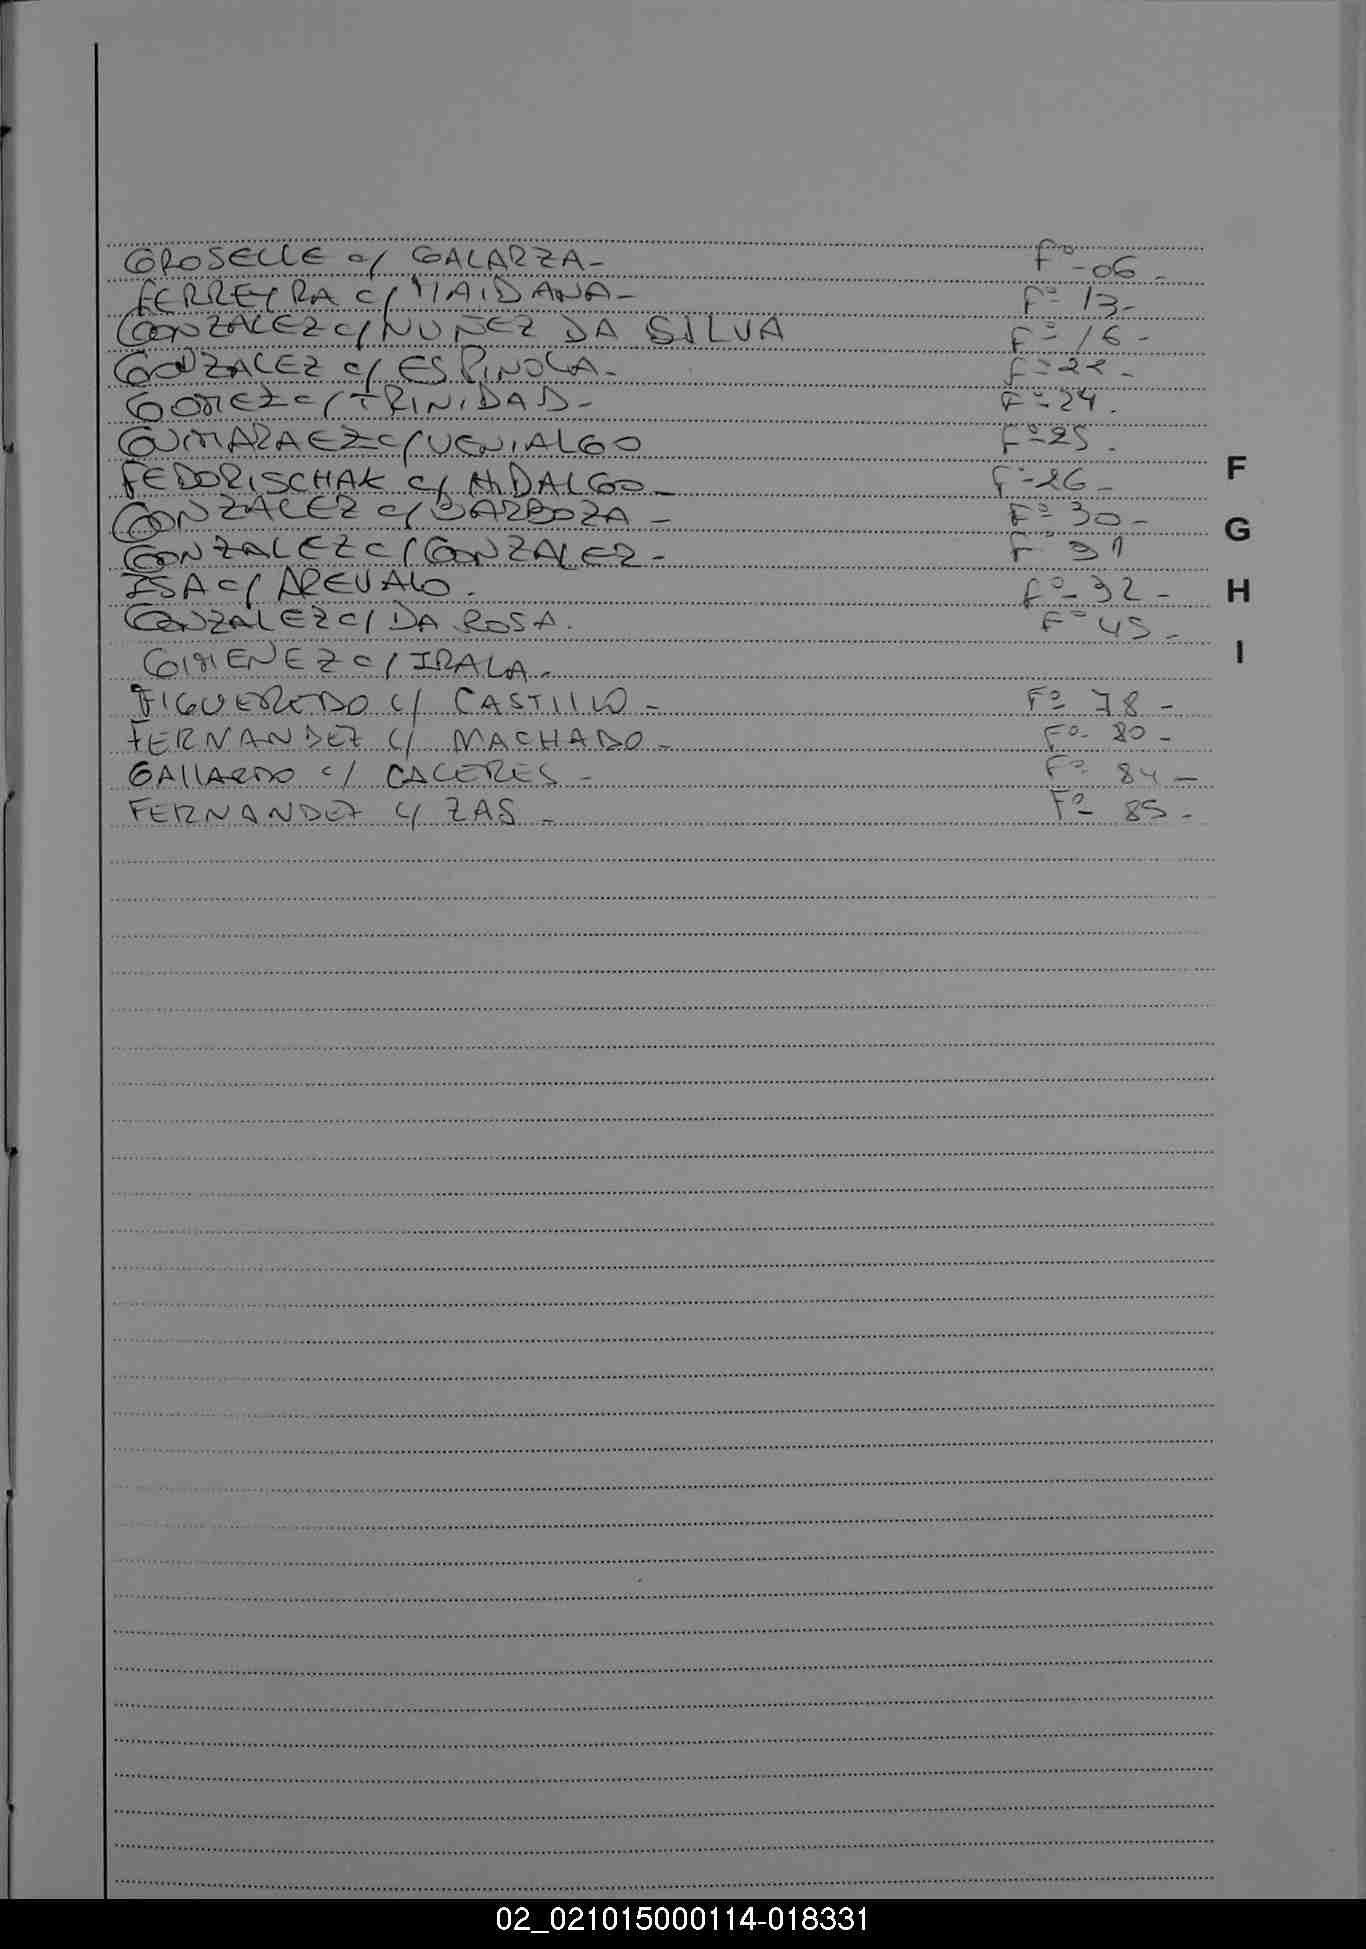 GROSELLE c/ GALARZA- Fº-06-
FERREYRA c/ MAIDANA- Fº-13-
GONZALEZ c/ NUÑEZ DA SILVA Fº-16-
GONZALEZ c/ ESPINOLA- Fº-22-
GOMEZ c/ TRINIDAD- Fº-24.
c/ VENIALGO Fº-25.
FEDORISCHAK c/ HIDALGO- Fº-26-
GONZALEZ c/ BARBOZA- Fº-30-
GONZALEZ c/ GONZALEZ- Fº 31
ISA c/ AREVALO. Fº-32-
GONZALEZ c/ DA ROSA. Fº 45-
GIMENEZ c/ IRALA-
FIGUEREDO c/ CASTILLO- Fº 78-
FERNANDEZ c/ MACHADO- Fº 80-
GALLARDO c/ CACERES- Fº 84-
FERNANDEZ c/ ZAS- Fº 85-
F
G
H
I
02_021015000114-018331